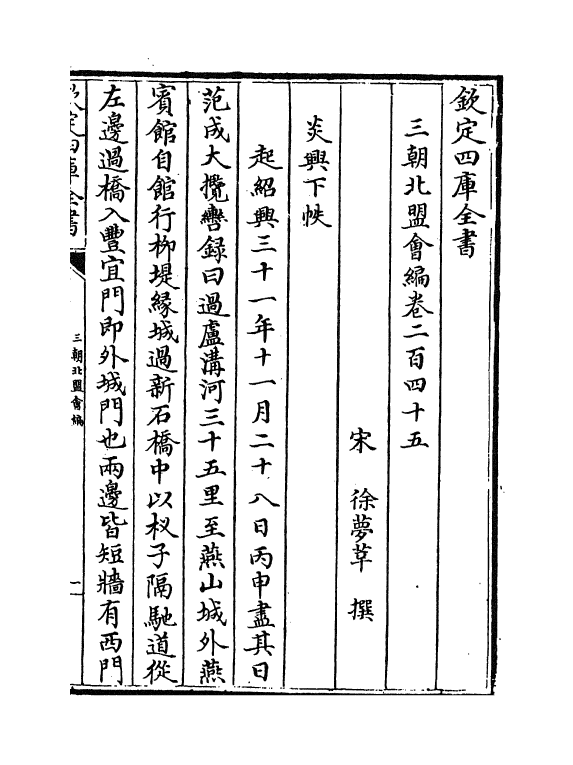 欽定四庫全書
三朝北盟會編卷二百四十五
宋 徐夢莘 撰
炎興下帙
起紹興三十一年十一月二十八日丙申盡其日
范成大攬轡録曰過盧溝河三十五里至燕山城外燕
賓館自館行栁堤縁城過新石橋中以杈子隔馳道從
左邊過橋入豐宜門即外城門也兩邊皆短牆有西門
欽定四庫全書
三朝北盟會編
一